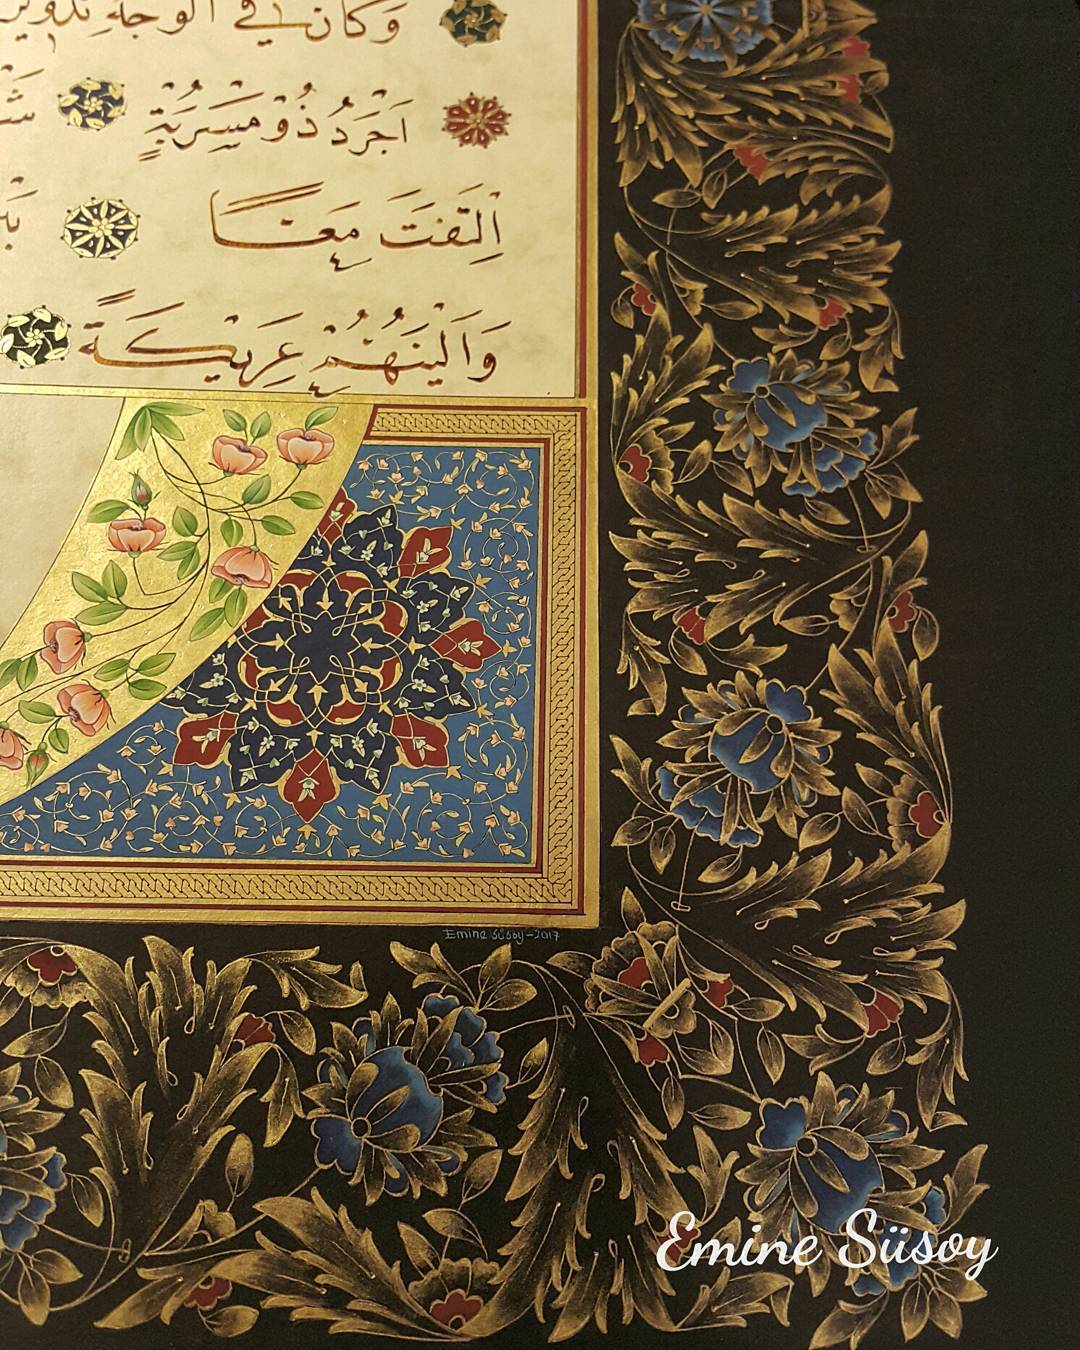 وَكَانَ فِي الْوَجْهِ تَدْوِيرٌ
اَجْرَدُ ذُوْ مَسْرُبَةٍ
اِلْتَفَتَ مَعًا
وَاَلْيَنُهُمْ عَرِيْكَةً
Emine Süsoy-2017
Emine Süsoy